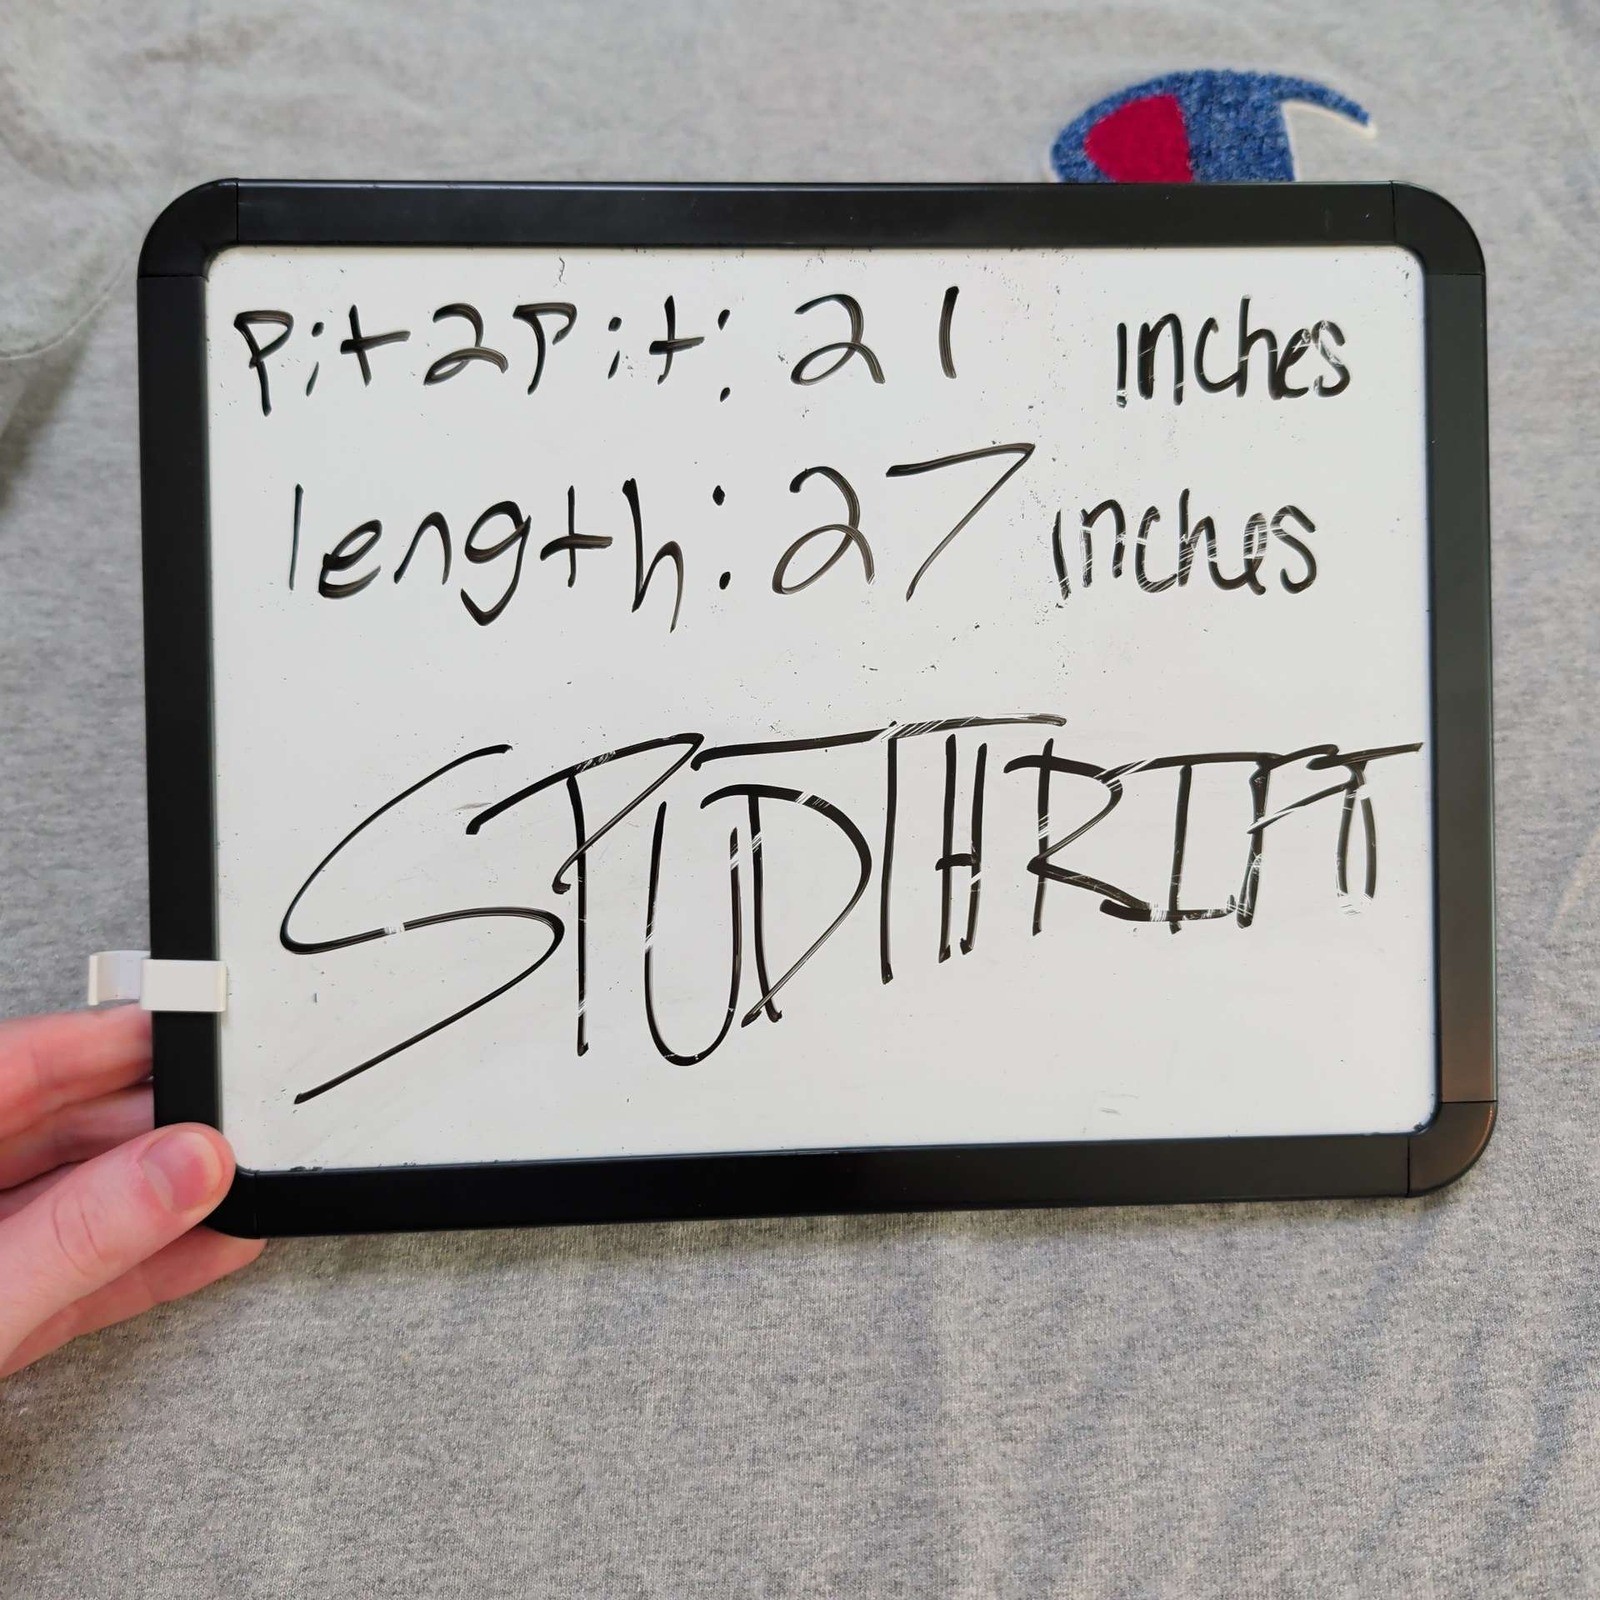 pit2pit: 21 inches
length: 27 inches
SPUDTHRIFT